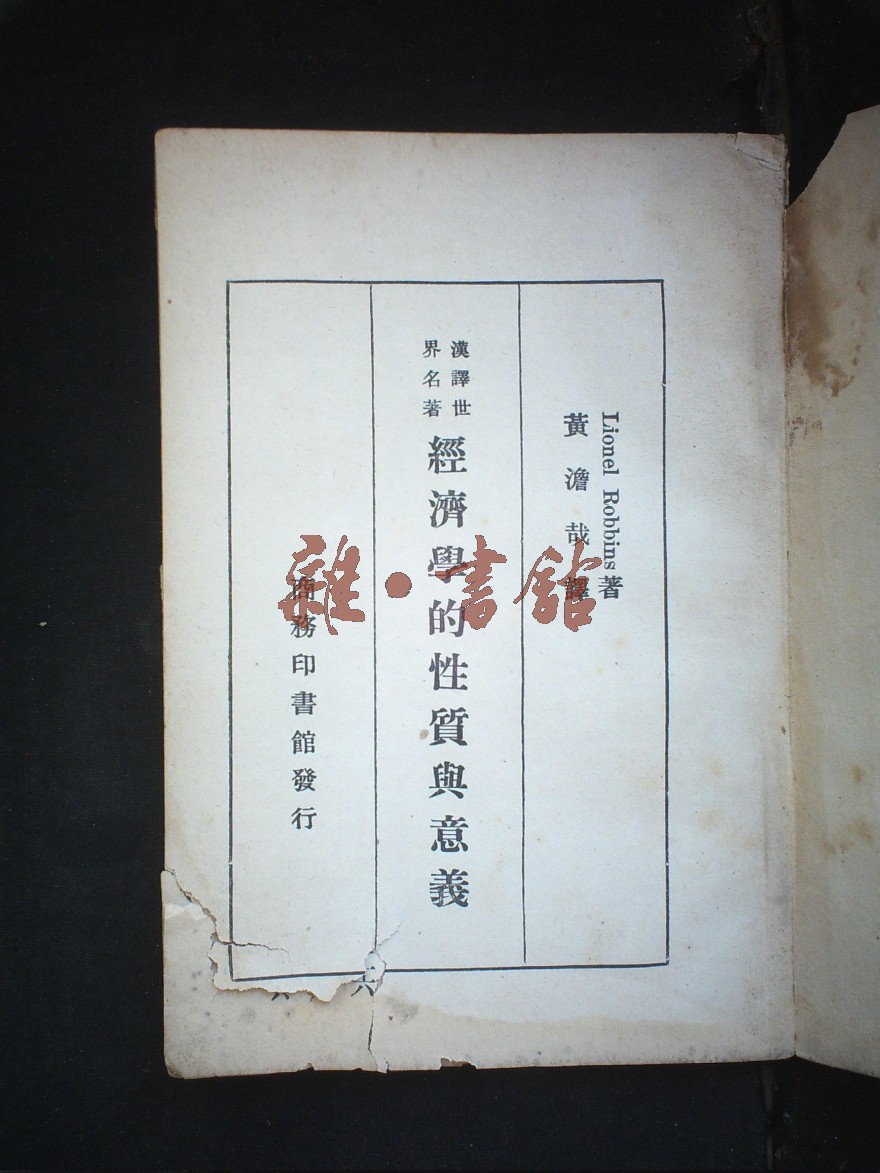 Lionel Robbins著
黃澹哉譯
漢譯世
界名著
經濟學的性質與意義
商務印書館發行
雜·書館
六